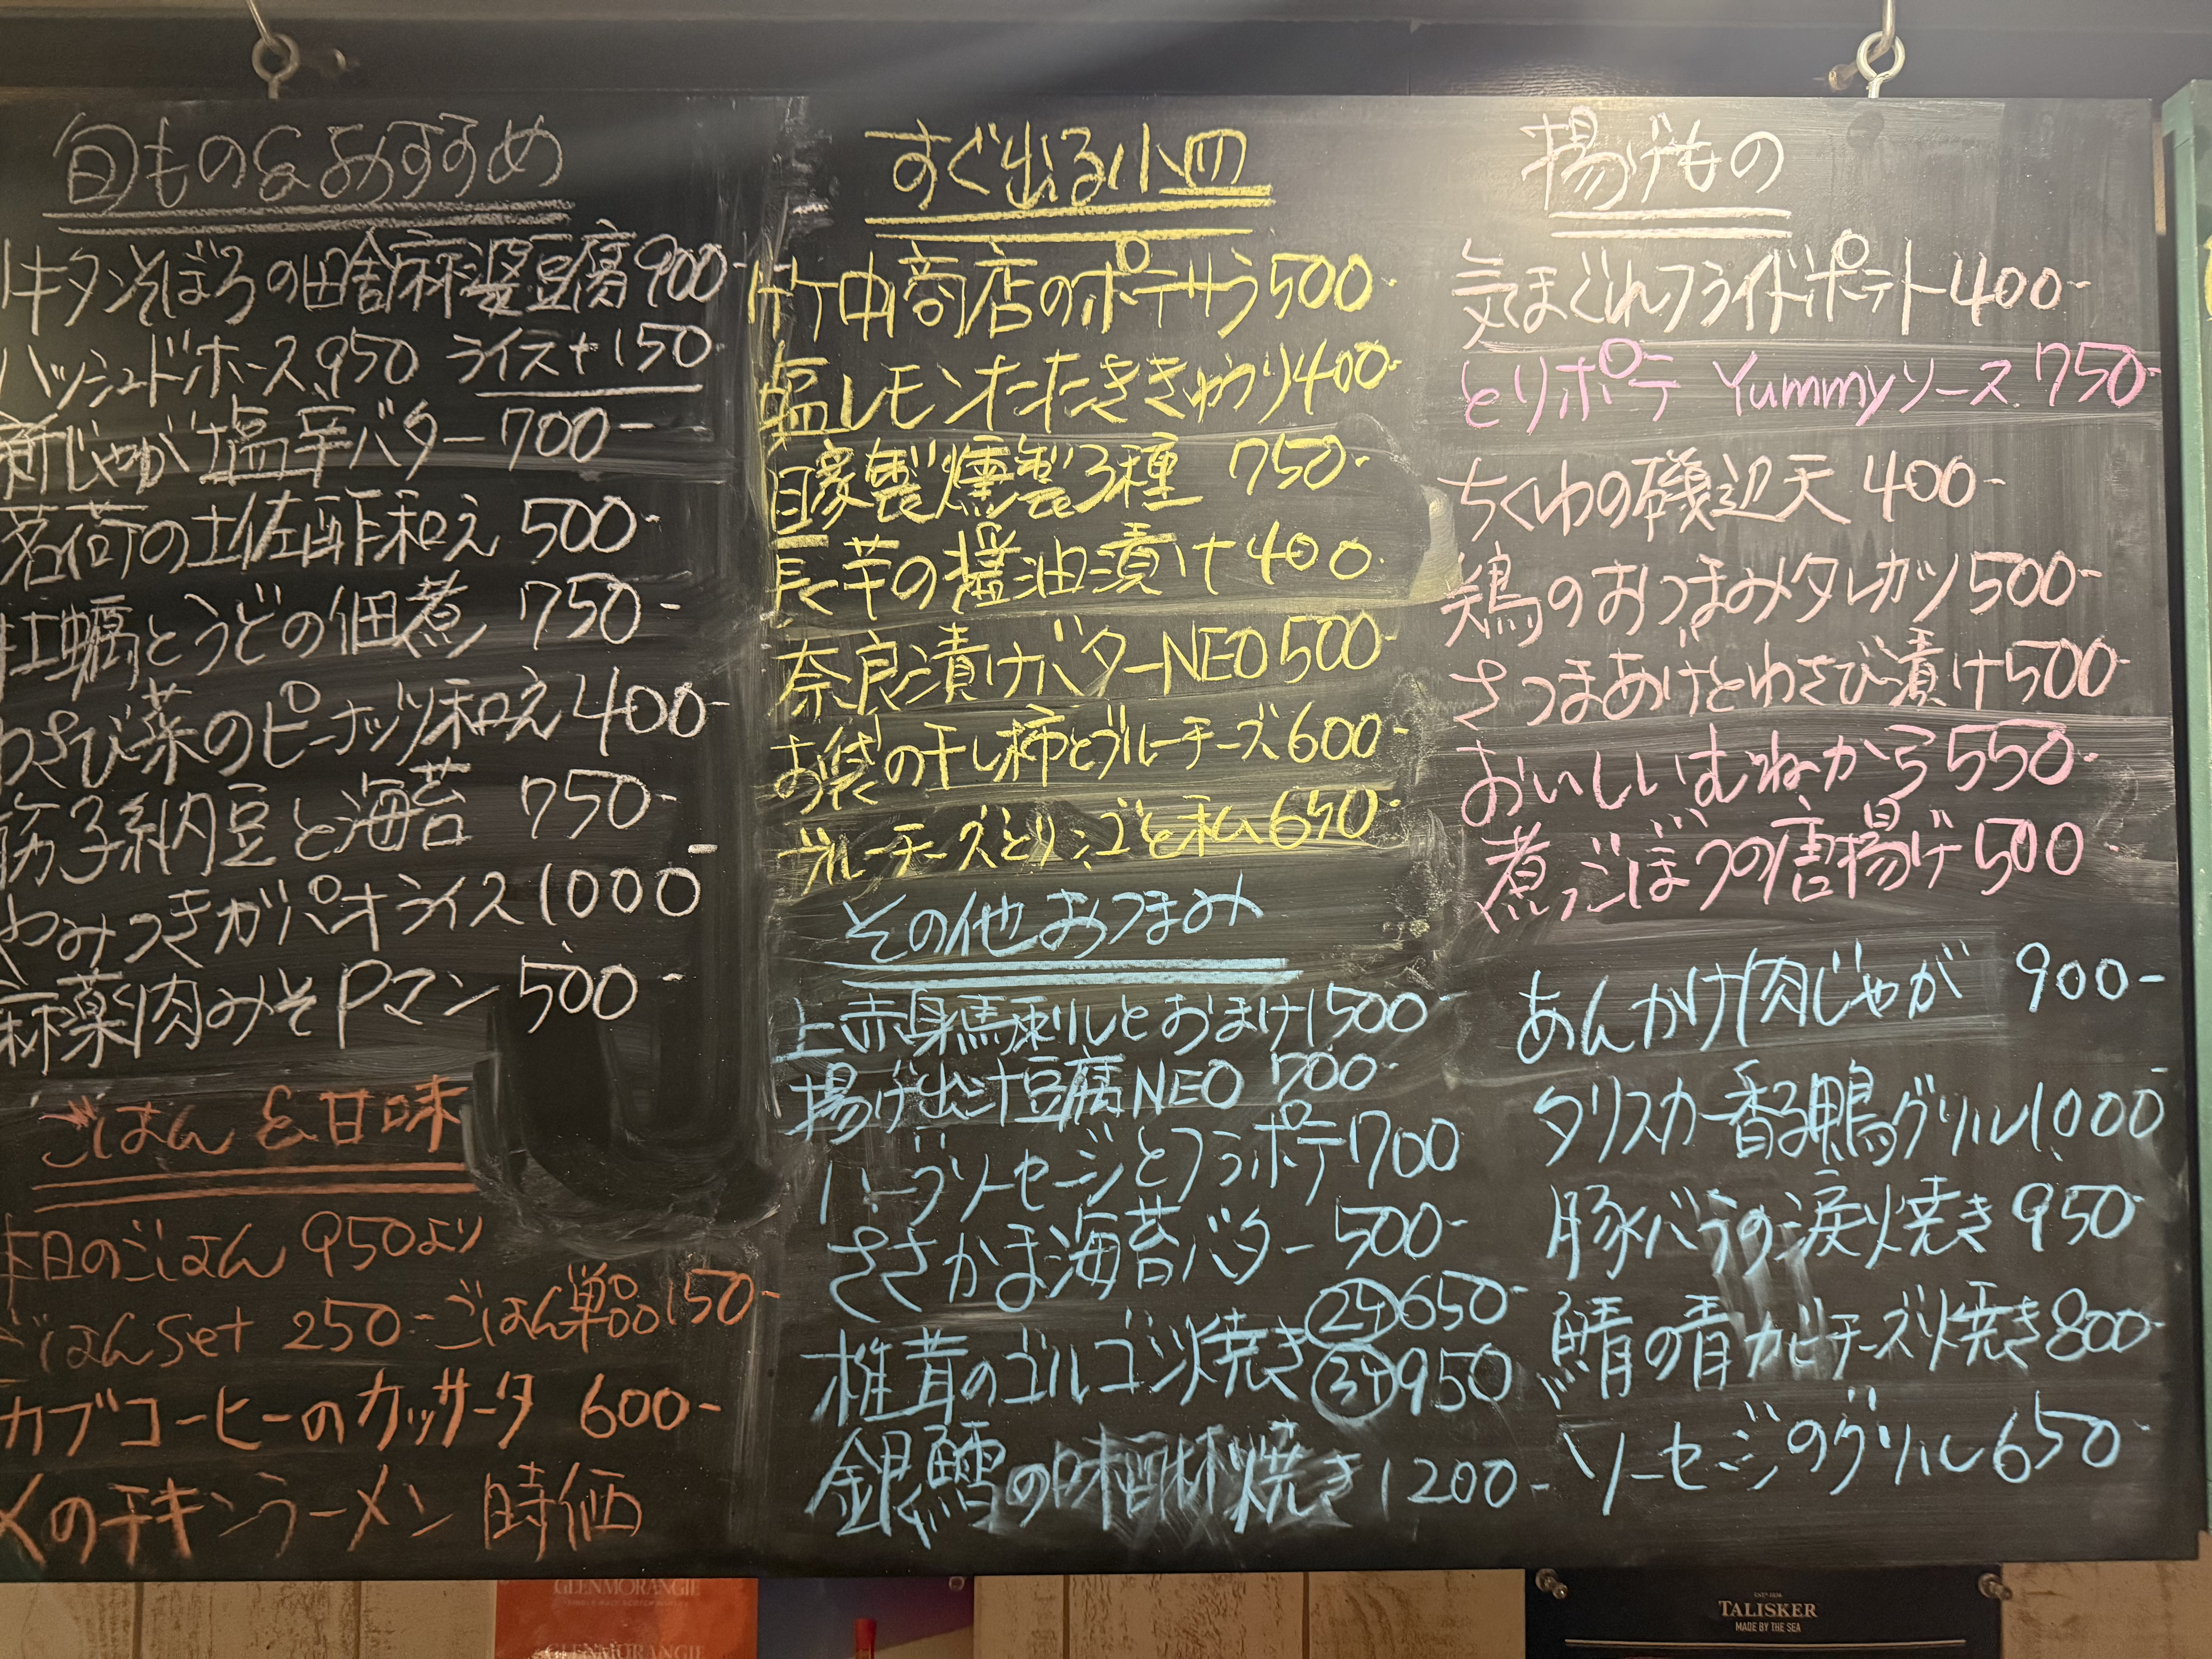 旬もの&おすすめ
キタンそぼろの田舎麻婆豆腐900-
ハッシュドホース950 ライス+150-
新じゃが塩辛バター700-
茗荷の土佐酢和え 500-
牡蠣とうどの佃煮 750-
わさび菜のピーナッツ和え400-
筋子納豆と海苔 750-
やみつきガパオライス1000-
麻薬肉みそPマン 500-
ごはん&甘味
本日のごはん 950より
ごはんSet 250-ごはん単品150-
カブコーヒーのカッサータ 600-
〆のチキンラーメン 時価
すぐ出る小皿
竹中商店のポテサラ500-
塩レモンたたききゅうり400-
自家製燻製3種 750-
長芋の醤油漬け400.
奈良漬けバターNEO500-
お袋の干し柿とブルーチーズ600-
ブルーチーズとリンゴと私650-
その他おつまみ
上赤身馬刺しとおまけ1500-
揚げ出汁豆腐NEO 700-
ハーブソーセージとフラポテ1700
ささかま海苔バター 500-
椎茸のゴルゴン焼き
650-
950
銀鱈の味醂焼き1200-
揚げもの
気まぐれフライドポテト400-
とりポテ Yummyソース 750-
ちくわの磯辺天 400-
鶏のおつまみタレカツ500-
さつまあげとわさび漬け500-
おいしいむねから550-
煮ごぼうの唐揚げ500-
あんかけ肉じゃが 900-
タリスカー香る鴨グリル1000-
豚バラの涙焼き950-
鯖の青カビチーズ焼き800-
ソーセージのグリル650-
GLENMORANGIE
GLENMORANGIE
TALISKER
MADE BY THE SEA